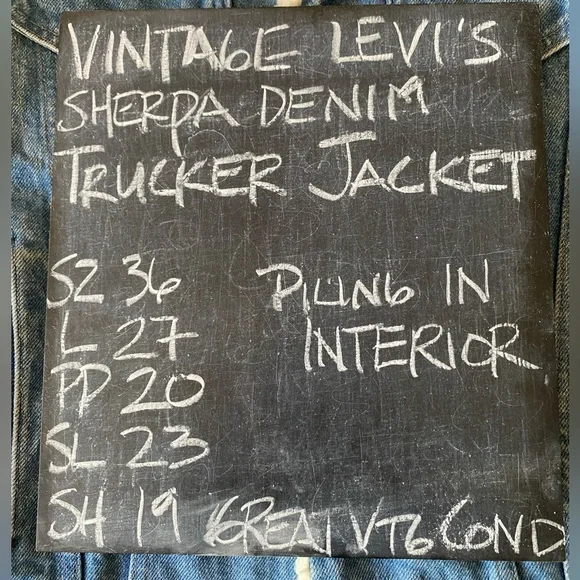 VINTAGE LEVI'S
SHERPA DENIM
TRUCKER JACKET
SZ 36
L 27
PP 20
SL 23
SH 19
PILING IN
INTERIOR
GREAT VTG COND